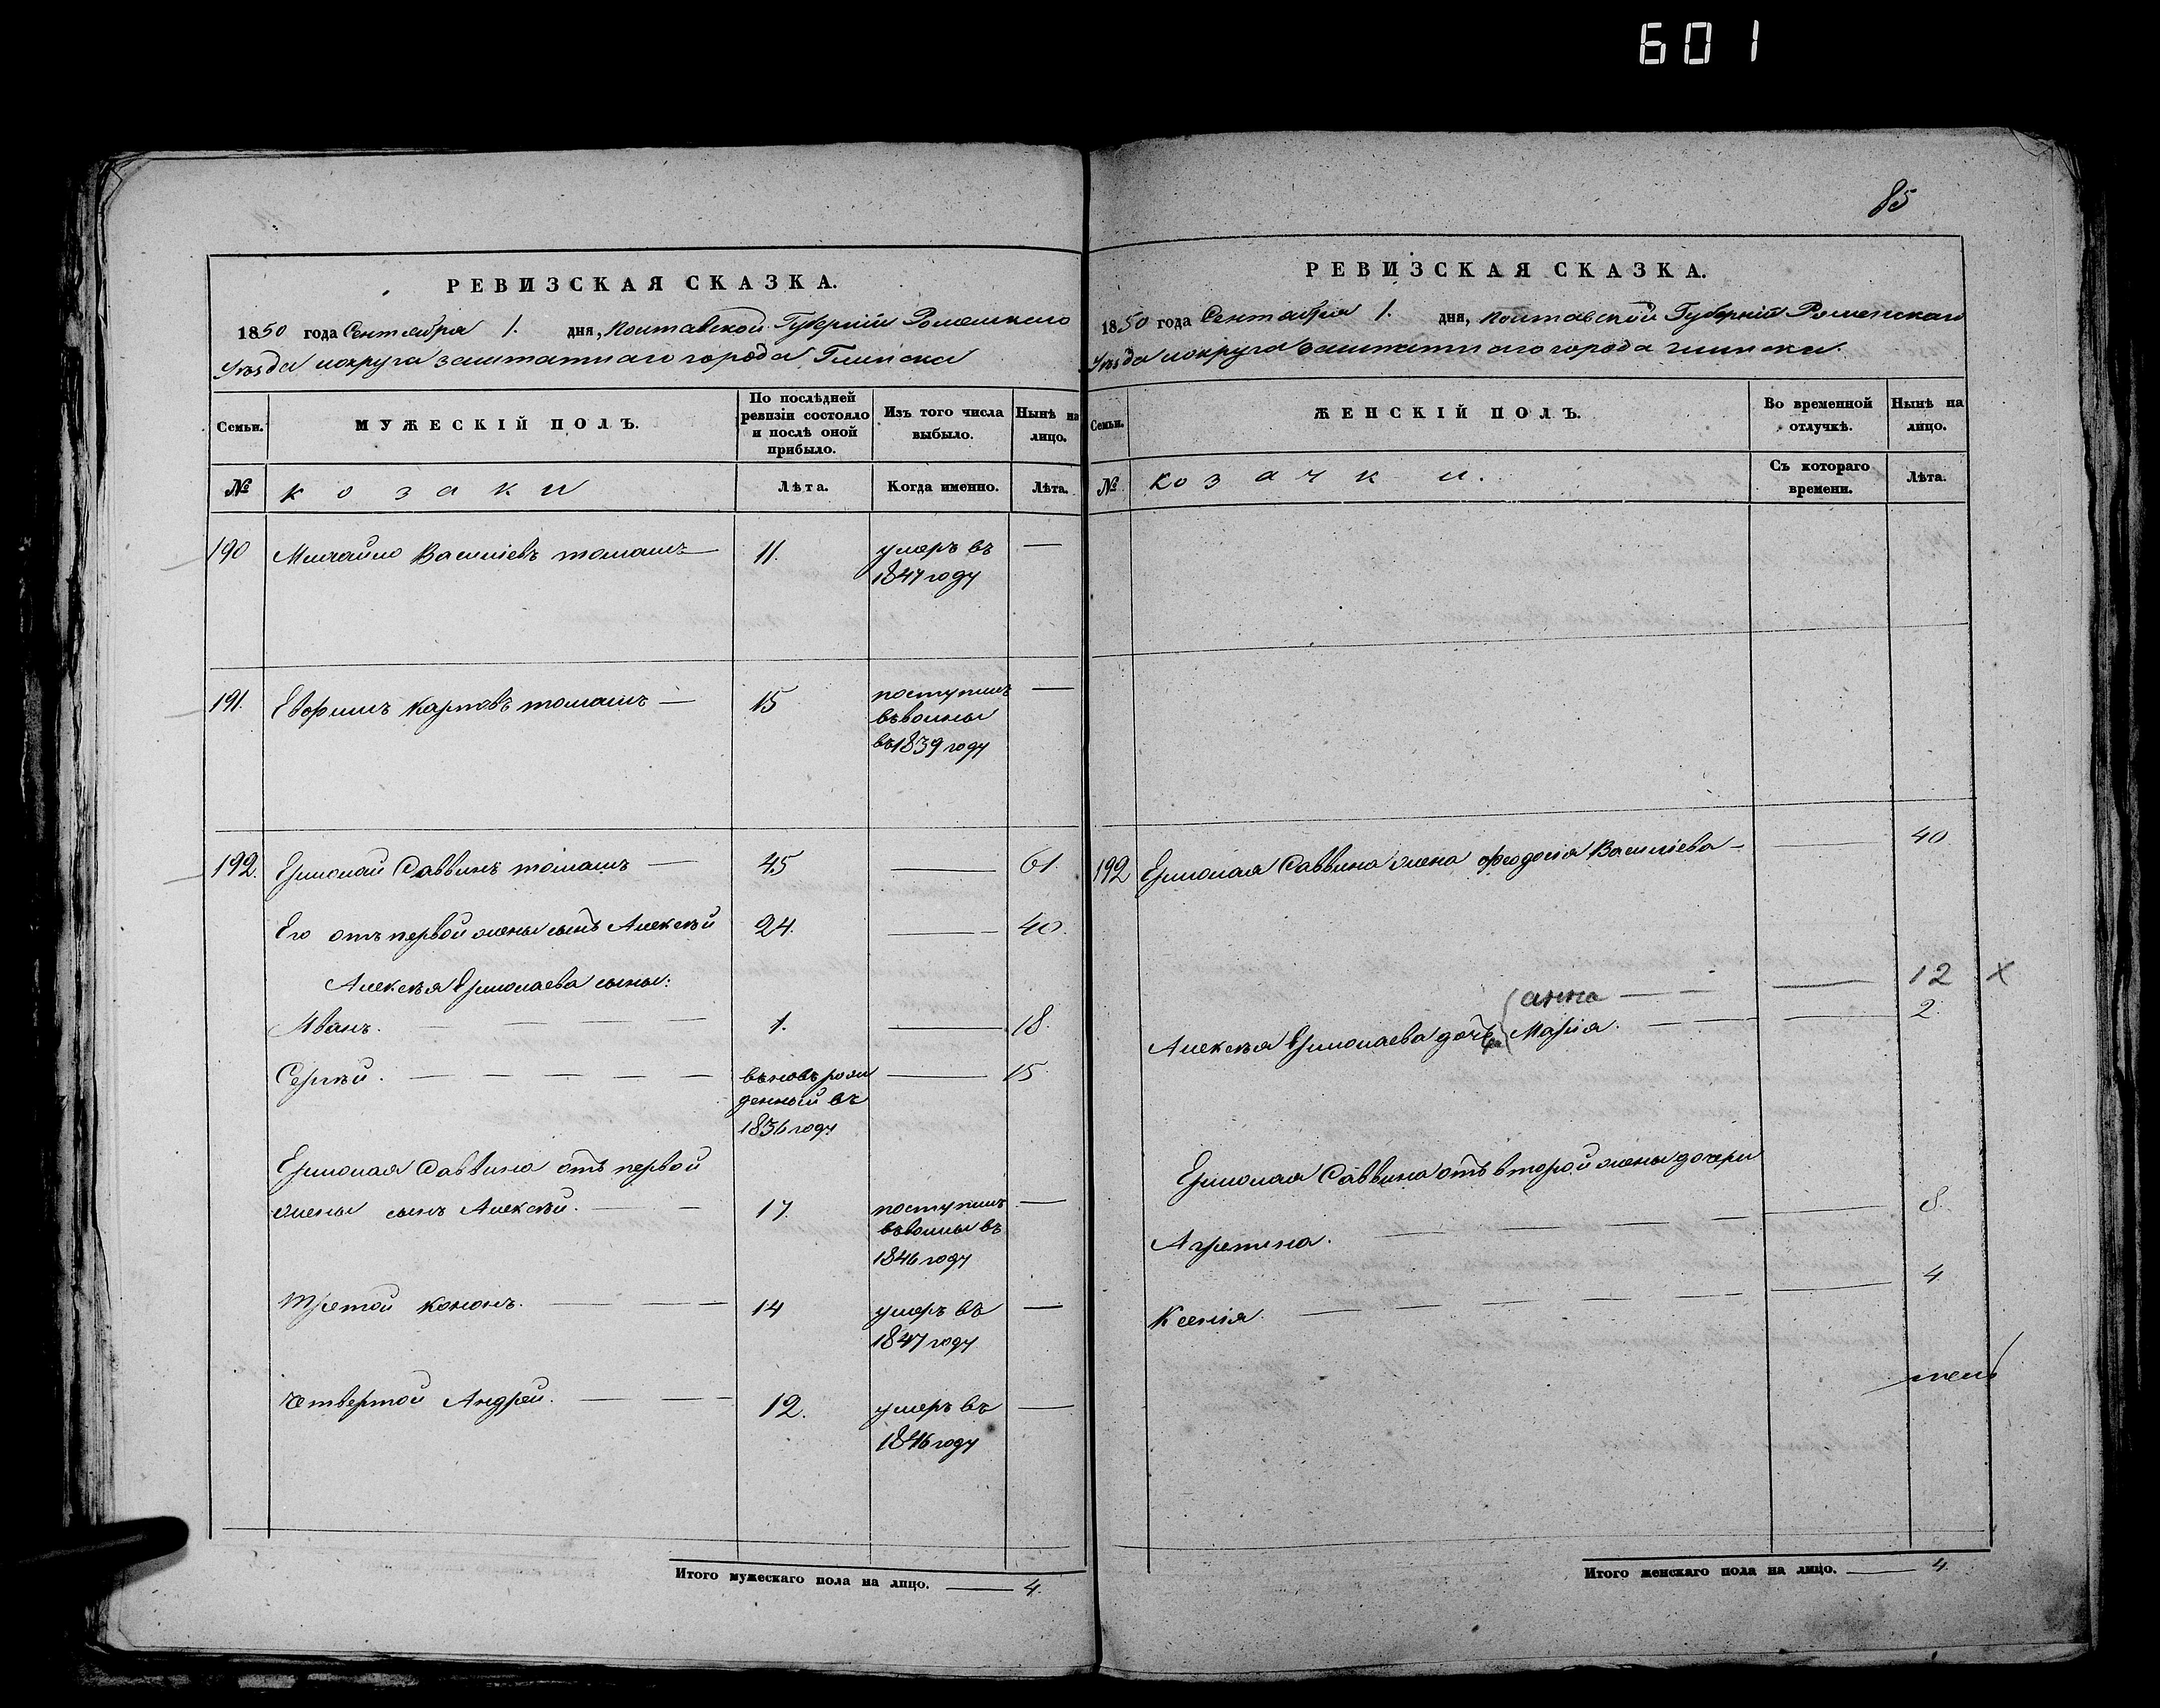 601
РЕВИЗСКАЯ СКАЗКА.
1850 года Сентября 1. дня, Полтавской Губерніи Роменскаго
Уѣзда округа заштатнаго города Глинска
Семьи.
МУЖЕСКІЙ ПОЛЪ.
По послѣдней ревизіи состояло и послѣ оной прибыло.
Изъ того числа выбыло.
Нынѣ на лицо.
№
козаки
Лѣта.
Когда именно.
Лѣта.
190 Михайло Василіевъ 11. умеръ въ —
1847 году
191. Евфимъ Карповъ — 15 поступилъ —
въ воины
въ 1839 году
192. Ермолай Саввинъ — 45 — 61.
Его отъ первой жены сынъ Алексѣй 24. — 40.
Алексѣя Ермолаева сыны:
Иванъ. — — — — 1. — 18.
Сергѣй. — — — — — въновь рож — 15
денный въ
1836 году
Ермолая Саввина отъ первой
жены сынъ Алексѣй. — — 17. поступилъ —
въ воины въ
1846 году
третой Кононъ. — — — 14 умеръ въ —
1847 году
четвертой Андрей. — — — 12. умеръ въ —
1846 году
Итого мужескаго пола на лицо. — 4.
85
РЕВИЗСКАЯ СКАЗКА.
1850 года Сентября 1. дня, Полтавской Губерніи Роменскаго
Уѣзда округа заштатнаго города глинска.
Семьи.
ЖЕНСКІЙ ПОЛЪ.
Во временной отлучкѣ.
Нынѣ на лицо.
№
козачки.
Съ котораго времени.
Лѣта.
192 Ермолая Саввина жена Феодосія Василіева — — 40.
анна — — — 12 х
Алексѣя Ермолаева дочери Марія. — — — 2.
Ермолая Саввина отъ второй жены дочери
Агрепина. — — — — — 8.
Ксенія. — — — — — — 4
Итого женскаго пола на лицо. — 4.